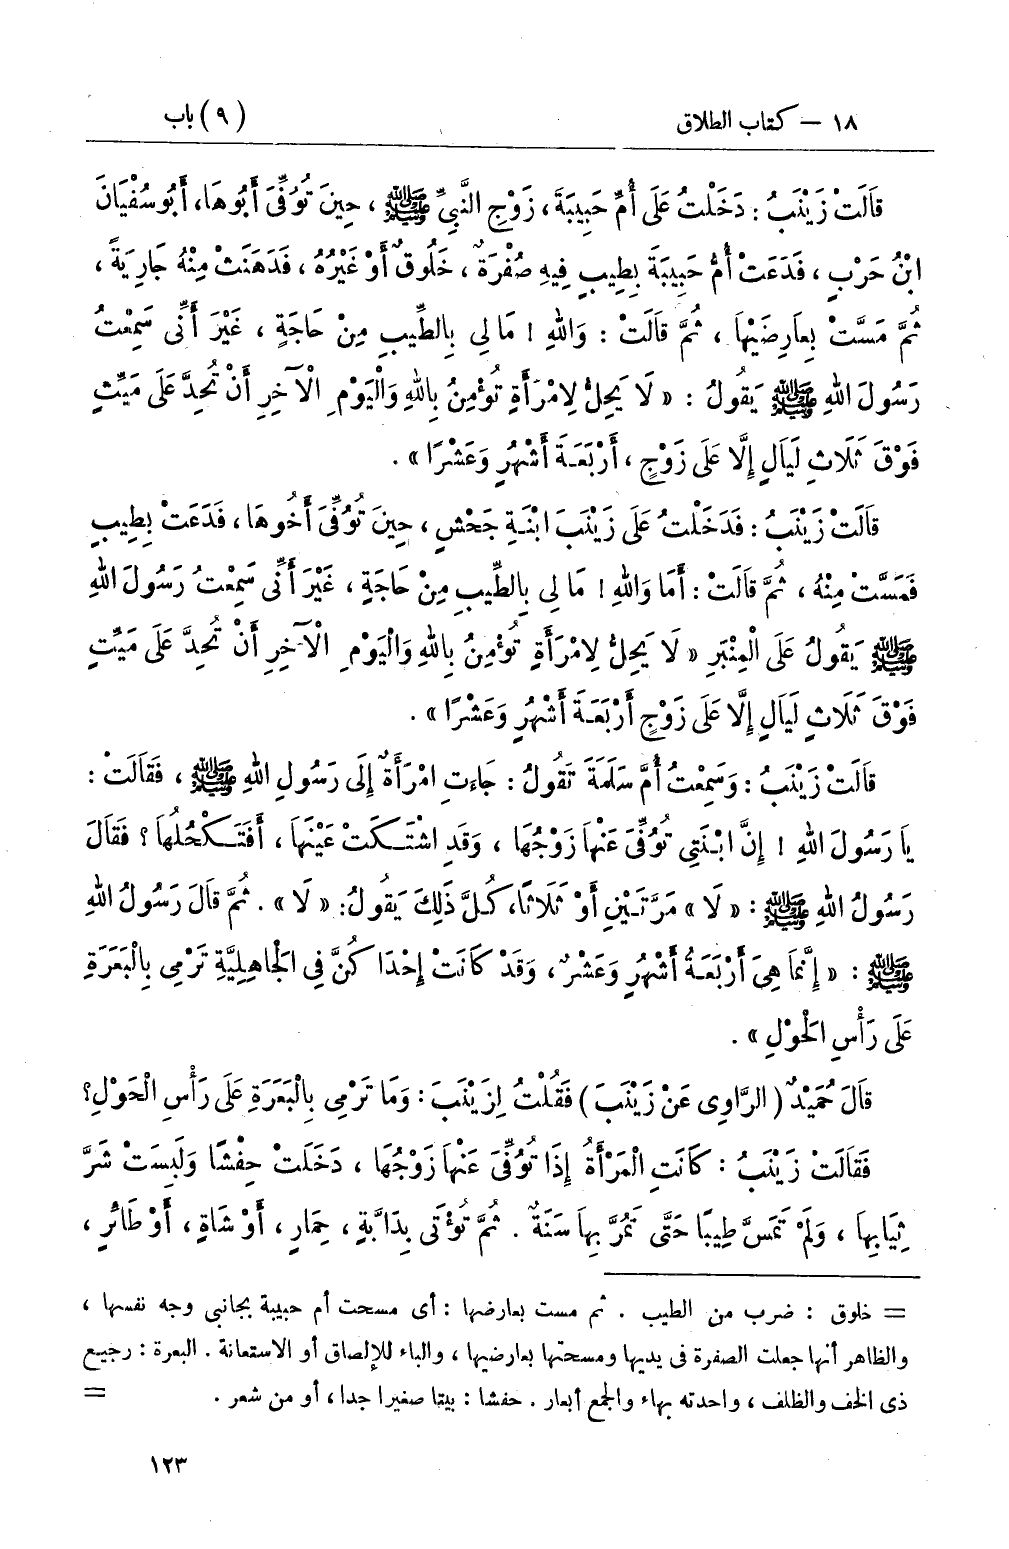 ١٨ – كتاب الطلاق (٩) باب
قَالَتْ زَيْنَبُ : دَخَلْتُ عَلَى أُمِّ حَبِيبَةَ ، زَوْجِ النَّبِيِّ ﷺ ، حِينَ تُوُفِّىَ أَبُوهَا، أَبُو سُفْيَانَ
ابْنُ حَرْبٍ ، فَدَعَتْ أُمُّ حَبِيبَةَ بِطِيبٍ فِيهِ صُفْرَةٌ ، خَلُوقٌ أَوْ غَيْرُهُ ، فَدَهَنَتْ مِنْهُ جَارِيَةً ،
ثُمَّ مَسَّتْ بِعَارِضَيْهَا ، ثُمَّ قَالَتْ : وَاللهِ ! مَا لِى بِالطِّيبِ مِنْ حَاجَةٍ ، غَيْرَ أَنِّى سَمِعْتُ
رَسُولَ اللهِ ﷺ يَقُولُ : « لَا يَحِلُّ لِامْرَأَةٍ تُؤْمِنُ بِاللهِ وَالْيَوْمِ الْآخِرِ أَنْ تُحِدَّ عَلَى مَيِّتٍ
فَوْقَ ثَلَاثِ لَيَالٍ إِلَّا عَلَى زَوْجٍ ، أَرْبَعَةَ أَشْهُرٍ وَعَشْرًا » .
قَالَتْ زَيْنَبُ : فَدَخَلْتُ عَلَى زَيْنَبَ ابْنَةِ جَحْشٍ ، حِينَ تُوُفِّىَ أَخُوهَا ، فَدَعَتْ بِطِيبٍ
فَمَسَّتْ مِنْهُ ، ثُمَّ قَالَتْ : أَمَا وَاللهِ ! مَا لِى بِالطِّيبِ مِنْ حَاجَةٍ ، غَيْرَ أَنِّى سَمِعْتُ رَسُولَ اللهِ
ﷺ يَقُولُ عَلَى الْمِنْبَرِ « لَا يَحِلُّ لِامْرَأَةٍ تُؤْمِنُ بِاللهِ وَالْيَوْمِ الْآخِرِ أَنْ تُحِدَّ عَلَى مَيِّتٍ
فَوْقَ ثَلَاثِ لَيَالٍ إِلَّا عَلَى زَوْجٍ أَرْبَعَةَ أَشْهُرٍ وَعَشْرًا » .
قَالَتْ زَيْنَبُ : وَسَمِعْتُ أُمَّ سَلَمَةَ تَقُولُ : جَاءَتِ امْرَأَةٌ إِلَى رَسُولِ اللهِ ﷺ ، فَقَالَتْ :
يَا رَسُولَ اللهِ ! إِنَّ ابْنَتِى تُوُفِّىَ عَنْهَا زَوْجُهَا ، وَقَدِ اشْتَكَتْ عَيْنَهَا ، أَفَتَكْحُلُهَا ؟ فَقَالَ
رَسُولُ اللهِ ﷺ : « لَا » مَرَّتَيْنِ أَوْ ثَلَاثًا، كُلَّ ذَلِكَ يَقُولُ: « لَا » . ثُمَّ قَالَ رَسُولُ اللهِ
ﷺ : « إِنَّمَا هِىَ أَرْبَعَةُ أَشْهُرٍ وَعَشْرٌ، وَقَدْ كَانَتْ إِحْدَاكُنَّ فِى الْجَاهِلِيَّةِ تَرْمِى بِالْبَعَرَةِ
عَلَى رَأْسِ الْحَوْلِ » .
قَالَ حُمَيْدٌ ( الرَّاوِى عَنْ زَيْنَبَ ) فَقُلْتُ لِزَيْنَبَ : وَمَا تَرْمِى بِالْبَعَرَةِ عَلَى رَأْسِ الْحَوْلِ؟
فَقَالَتْ زَيْنَبُ : كَانَتِ الْمَرْأَةُ إِذَا تُوُفِّىَ عَنْهَا زَوْجُهَا ، دَخَلَتْ حِفْشًا وَلَبِسَتْ شَرَّ
ثِيَابِهَا ، وَلَمْ تَمَسَّ طِيبًا حَتَّى تَمُرَّ بِهَا سَنَةٌ . ثُمَّ تُؤْتَى بِدَابَّةٍ ، حِمَارٍ ، أَوْ شَاةٍ ، أَوْ طَائِرٍ ،
= خلوق : ضرب من الطيب . ثم مست بعارضها : أى مسحت أم حبيبة بجانبى وجه نفسها ،
والظاهر أنها جعلت الصفرة فى يديها ومسحتها بعارضيها ، والباء للإلصاق أو الاستعانة . البعرة : رجيع
ذى الخف والظلف ، واحدته بهاء والجمع أبعار . حفشا : بيتا صغيرا جدا ، أو من شعر . =
١٢٣